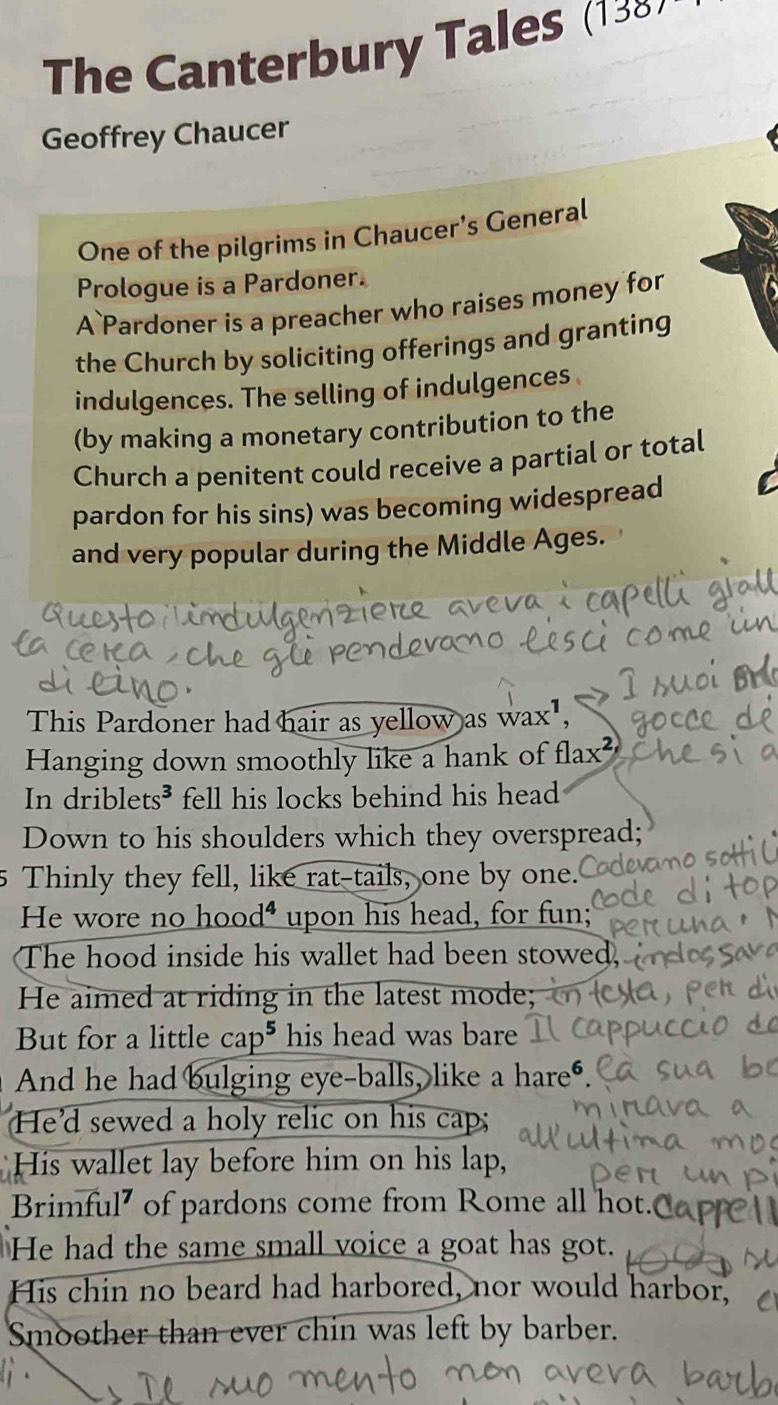 The Canterbury Tales (1387
Geoffrey Chaucer
One of the pilgrims in Chaucer's General
Prologue is a Pardoner.
A Pardoner is a preacher who raises money for
the Church by soliciting offerings and granting
indulgences. The selling of indulgences
(by making a monetary contribution to the
Church a penitent could receive a partial or total
pardon for his sins) was becoming widespread
and very popular during the Middle Ages.
Questo l'indulgenziere aveva i capelli giall
la cera, che gli pendevano lisci come un
di lino.
This Pardoner had hair as yellow as wax¹, I suoi
Hanging down smoothly like a hank of flax², gocce de
In driblets³ fell his locks behind his head che si a
Down to his shoulders which they overspread;
5 Thinly they fell, like rat-tails, one by one. Cadevano sottili
He wore no hood⁴ upon his head, for fun; code di top
The hood inside his wallet had been stowed, per una
He aimed at riding in the latest mode; in testa, per di
But for a little cap⁵ his head was bare Il cappuccio
And he had bulging eye-balls, like a hare⁶. la sua
He'd sewed a holy relic on his cap; mirava a
His wallet lay before him on his lap, all'ultima mod
Brimful⁷ of pardons come from Rome all hot. per un pi
He had the same small voice a goat has got. Cappell
His chin no beard had harbored, nor would harbor,
Smoother than ever chin was left by barber.
Il suo mento non aveva barb